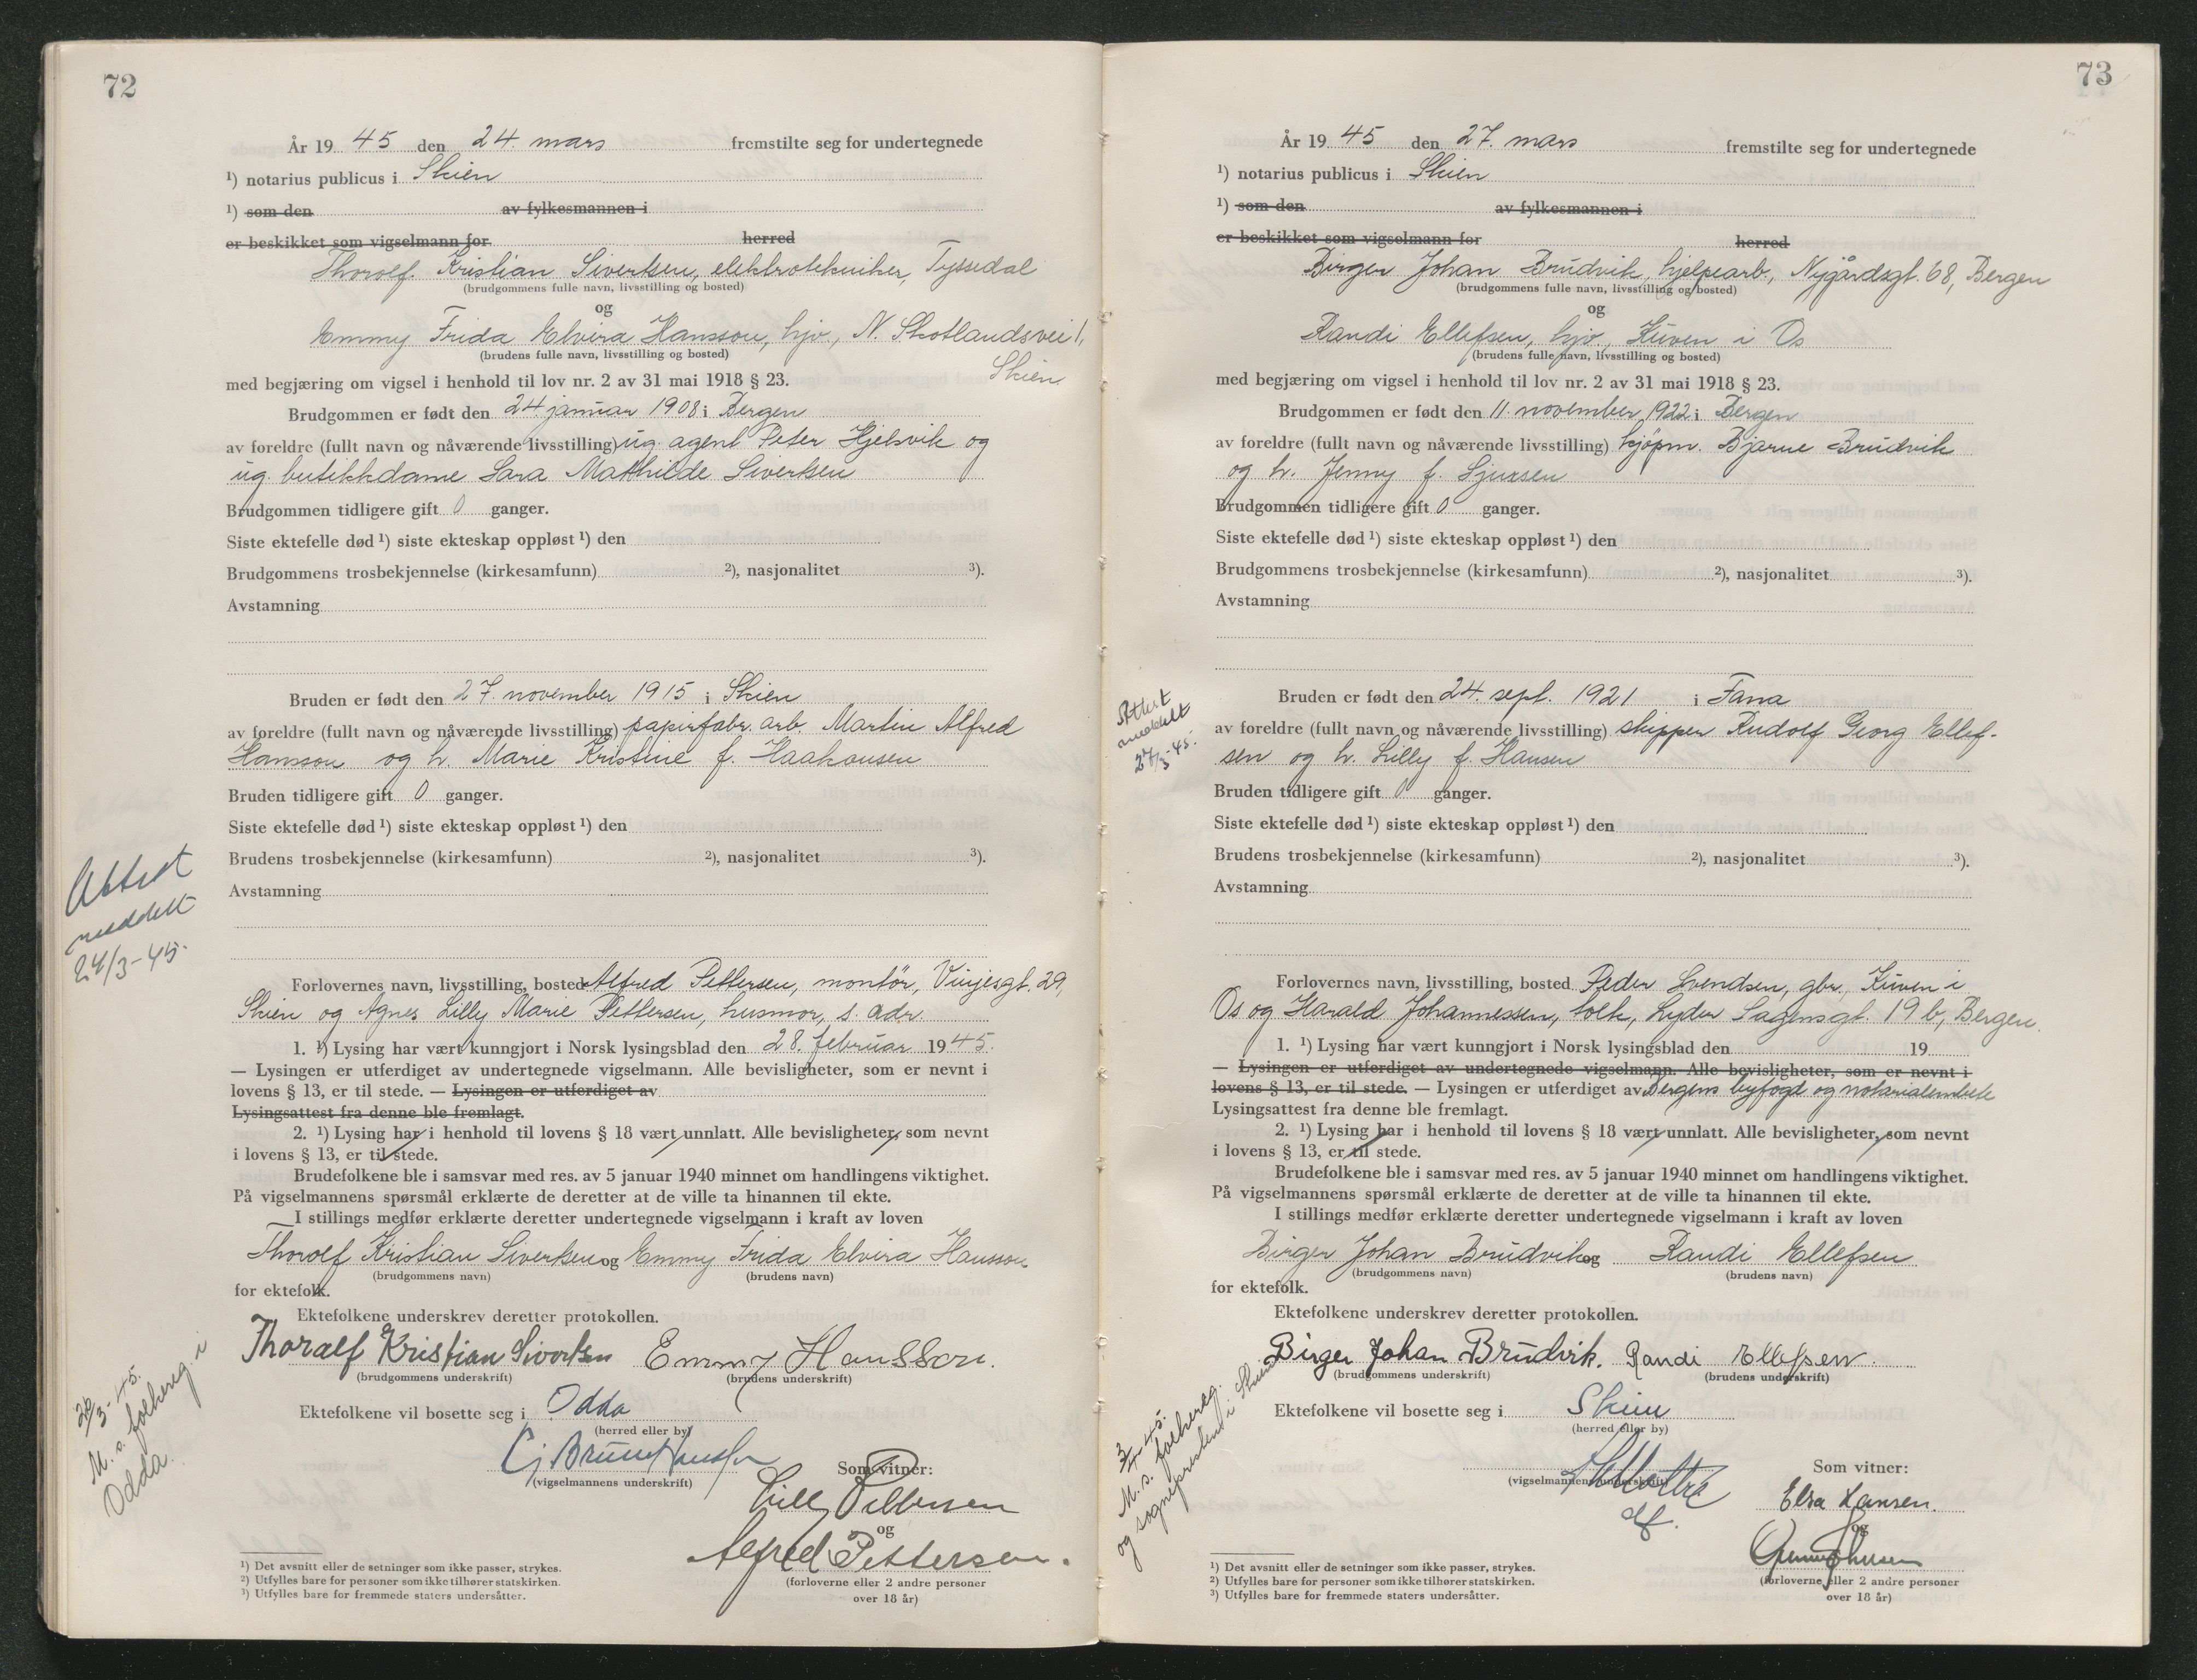 72
År 19 45 den 24. mars fremstilte seg for undertegnede
¹) notarius publicus i Skien
¹) som den av fylkesmannen i
er beskikket som vigselmann for herred
Thorolf Kristian Sivertsen, elektrotekniker, Tyssedal
(brudgommens fulle navn, livsstilling og bosted)
og
Emmy Frida Elvira Hansson, hjv., N. Skotlandsvei 1,
(brudens fulle navn, livsstilling og bosted)
Skien
med begjæring om vigsel i henhold til lov nr. 2 av 31 mai 1918 § 23.
Brudgommen er født den 24. januar 1908 i Bergen
av foreldre (fullt navn og nåværende livsstilling) ug. agent Peter Hjelsvik og
ug. butikkdame Sara Mathilde Sivertsen
Brudgommen tidligere gift 0 ganger.
Siste ektefelle død ¹) siste ekteskap oppløst ¹) den
Brudgommens trosbekjennelse (kirkesamfunn) ²), nasjonalitet ³).
Avstamning
Bruden er født den 27. november 1915 i Skien
av foreldre (fullt navn og nåværende livsstilling) papirfabr. arb. Martin Alfred
Hansson og h. Marie Kristine f. Haakonsen
Bruden tidligere gift 0 ganger.
Siste ektefelle død ¹) siste ekteskap oppløst ¹) den
Brudens trosbekjennelse (kirkesamfunn) ²), nasjonalitet ³).
Avstamning
Attest
meddelt
24/3-45.
Forlovernes navn, livsstilling, bosted Alfred Pettersen, montör, Vinjesgt. 29,
Skien og Agnes Lilly Marie Pettersen, husmor, s. adr.
1. ¹) Lysing har vært kunngjort i Norsk lysingsblad den 28. februar 1945.
— Lysingen er utferdiget av undertegnede vigselmann. Alle bevisligheter, som er nevnt i
lovens § 13, er til stede. — Lysingen er utferdiget av
Lysingsattest fra denne ble fremlagt.
2. ¹) Lysing har i henhold til lovens § 18 vært unnlatt. Alle bevisligheter, som nevnt
i lovens § 13, er til stede.
Brudefolkene ble i samsvar med res. av 5 januar 1940 minnet om handlingens viktighet.
På vigselmannens spørsmål erklærte de deretter at de ville ta hinannen til ekte.
I stillings medfør erklærte deretter undertegnede vigselmann i kraft av loven
Thorolf Kristian Sivertsen og Emmy Frida Elvira Hansson
(brudgommens navn) (brudens navn)
for ektefolk.
Ektefolkene underskrev deretter protokollen.
Thoralf Kristian Sivertsen Emmy Hansson.
(brudgommens underskrift) (brudens underskrift)
Ektefolkene vil bosette seg i Odda
(herred eller by)
(vigselmannens underskrift)
Som vitner:
Lilly Pettersen
og
Alfred Pettersen.
(forloverne eller 2 andre personer
over 18 år)
M. s. folkereg. i
Odda.
¹) Det avsnitt eller de setninger som ikke passer, strykes.
²) Utfylles bare for personer som ikke tilhører statskirken.
³) Utfylles bare for fremmede staters undersåtter.
73
År 19 45 den 27. mars fremstilte seg for undertegnede
¹) notarius publicus i Skien
¹) som den av fylkesmannen i
er beskikket som vigselmann for herred
Birger Johan Brudvik, hjelpearb., Nygårdsgt. 68, Bergen
(brudgommens fulle navn, livsstilling og bosted)
og
Randi Ellefsen, hjv., Kuven i Os
(brudens fulle navn, livsstilling og bosted)
med begjæring om vigsel i henhold til lov nr. 2 av 31 mai 1918 § 23.
Brudgommen er født den 11. november 1922 i Bergen
av foreldre (fullt navn og nåværende livsstilling) kjöpm. Bjarne Brudvik
og h. Jenny f. Sjursen
Brudgommen tidligere gift 0 ganger.
Siste ektefelle død ¹) siste ekteskap oppløst ¹) den
Brudgommens trosbekjennelse (kirkesamfunn) ²), nasjonalitet ³).
Avstamning
Attest
meddelt
27/3-45.
Bruden er født den 24. sept. 1921 i Fana
av foreldre (fullt navn og nåværende livsstilling) skipper Rudolf Georg Ellef-
sen og h. Lilly f. Hansen
Bruden tidligere gift 0 ganger.
Siste ektefelle død ¹) siste ekteskap oppløst ¹) den
Brudens trosbekjennelse (kirkesamfunn) ²), nasjonalitet ³).
Avstamning
Forlovernes navn, livsstilling, bosted Peder Svendsen, gbr., Kuven i
Os og Harald Johannessen, tolk, Lyder Sagensgt. 19 b, Bergen.
1. ¹) Lysing har vært kunngjort i Norsk lysingsblad den 19
— Lysingen er utferdiget av undertegnede vigselmann. Alle bevisligheter, som er nevnt i
lovens § 13, er til stede. — Lysingen er utferdiget av Bergens byfogd og notarialembete
Lysingsattest fra denne ble fremlagt.
2. ¹) Lysing har i henhold til lovens § 18 vært unnlatt. Alle bevisligheter, som nevnt
i lovens § 13, er til stede.
Brudefolkene ble i samsvar med res. av 5 januar 1940 minnet om handlingens viktighet.
På vigselmannens spørsmål erklærte de deretter at de ville ta hinannen til ekte.
I stillings medfør erklærte deretter undertegnede vigselmann i kraft av loven
Birger Johan Brudvik og Randi Ellefsen
(brudgommens navn) (brudens navn)
for ektefolk.
Ektefolkene underskrev deretter protokollen.
Birger Johan Brudvik. Randi Ellefsen.
(brudgommens underskrift) (brudens underskrift)
Ektefolkene vil bosette seg i Skien
(herred eller by)
(vigselmannens underskrift)
Som vitner:
Elsa Hansen.
og
(forloverne eller 2 andre personer
over 18 år)
M. s. folkereg.
og sognepresten i Skien
¹) Det avsnitt eller de setninger som ikke passer, strykes.
²) Utfylles bare for personer som ikke tilhører statskirken.
³) Utfylles bare for fremmede staters undersåtter.